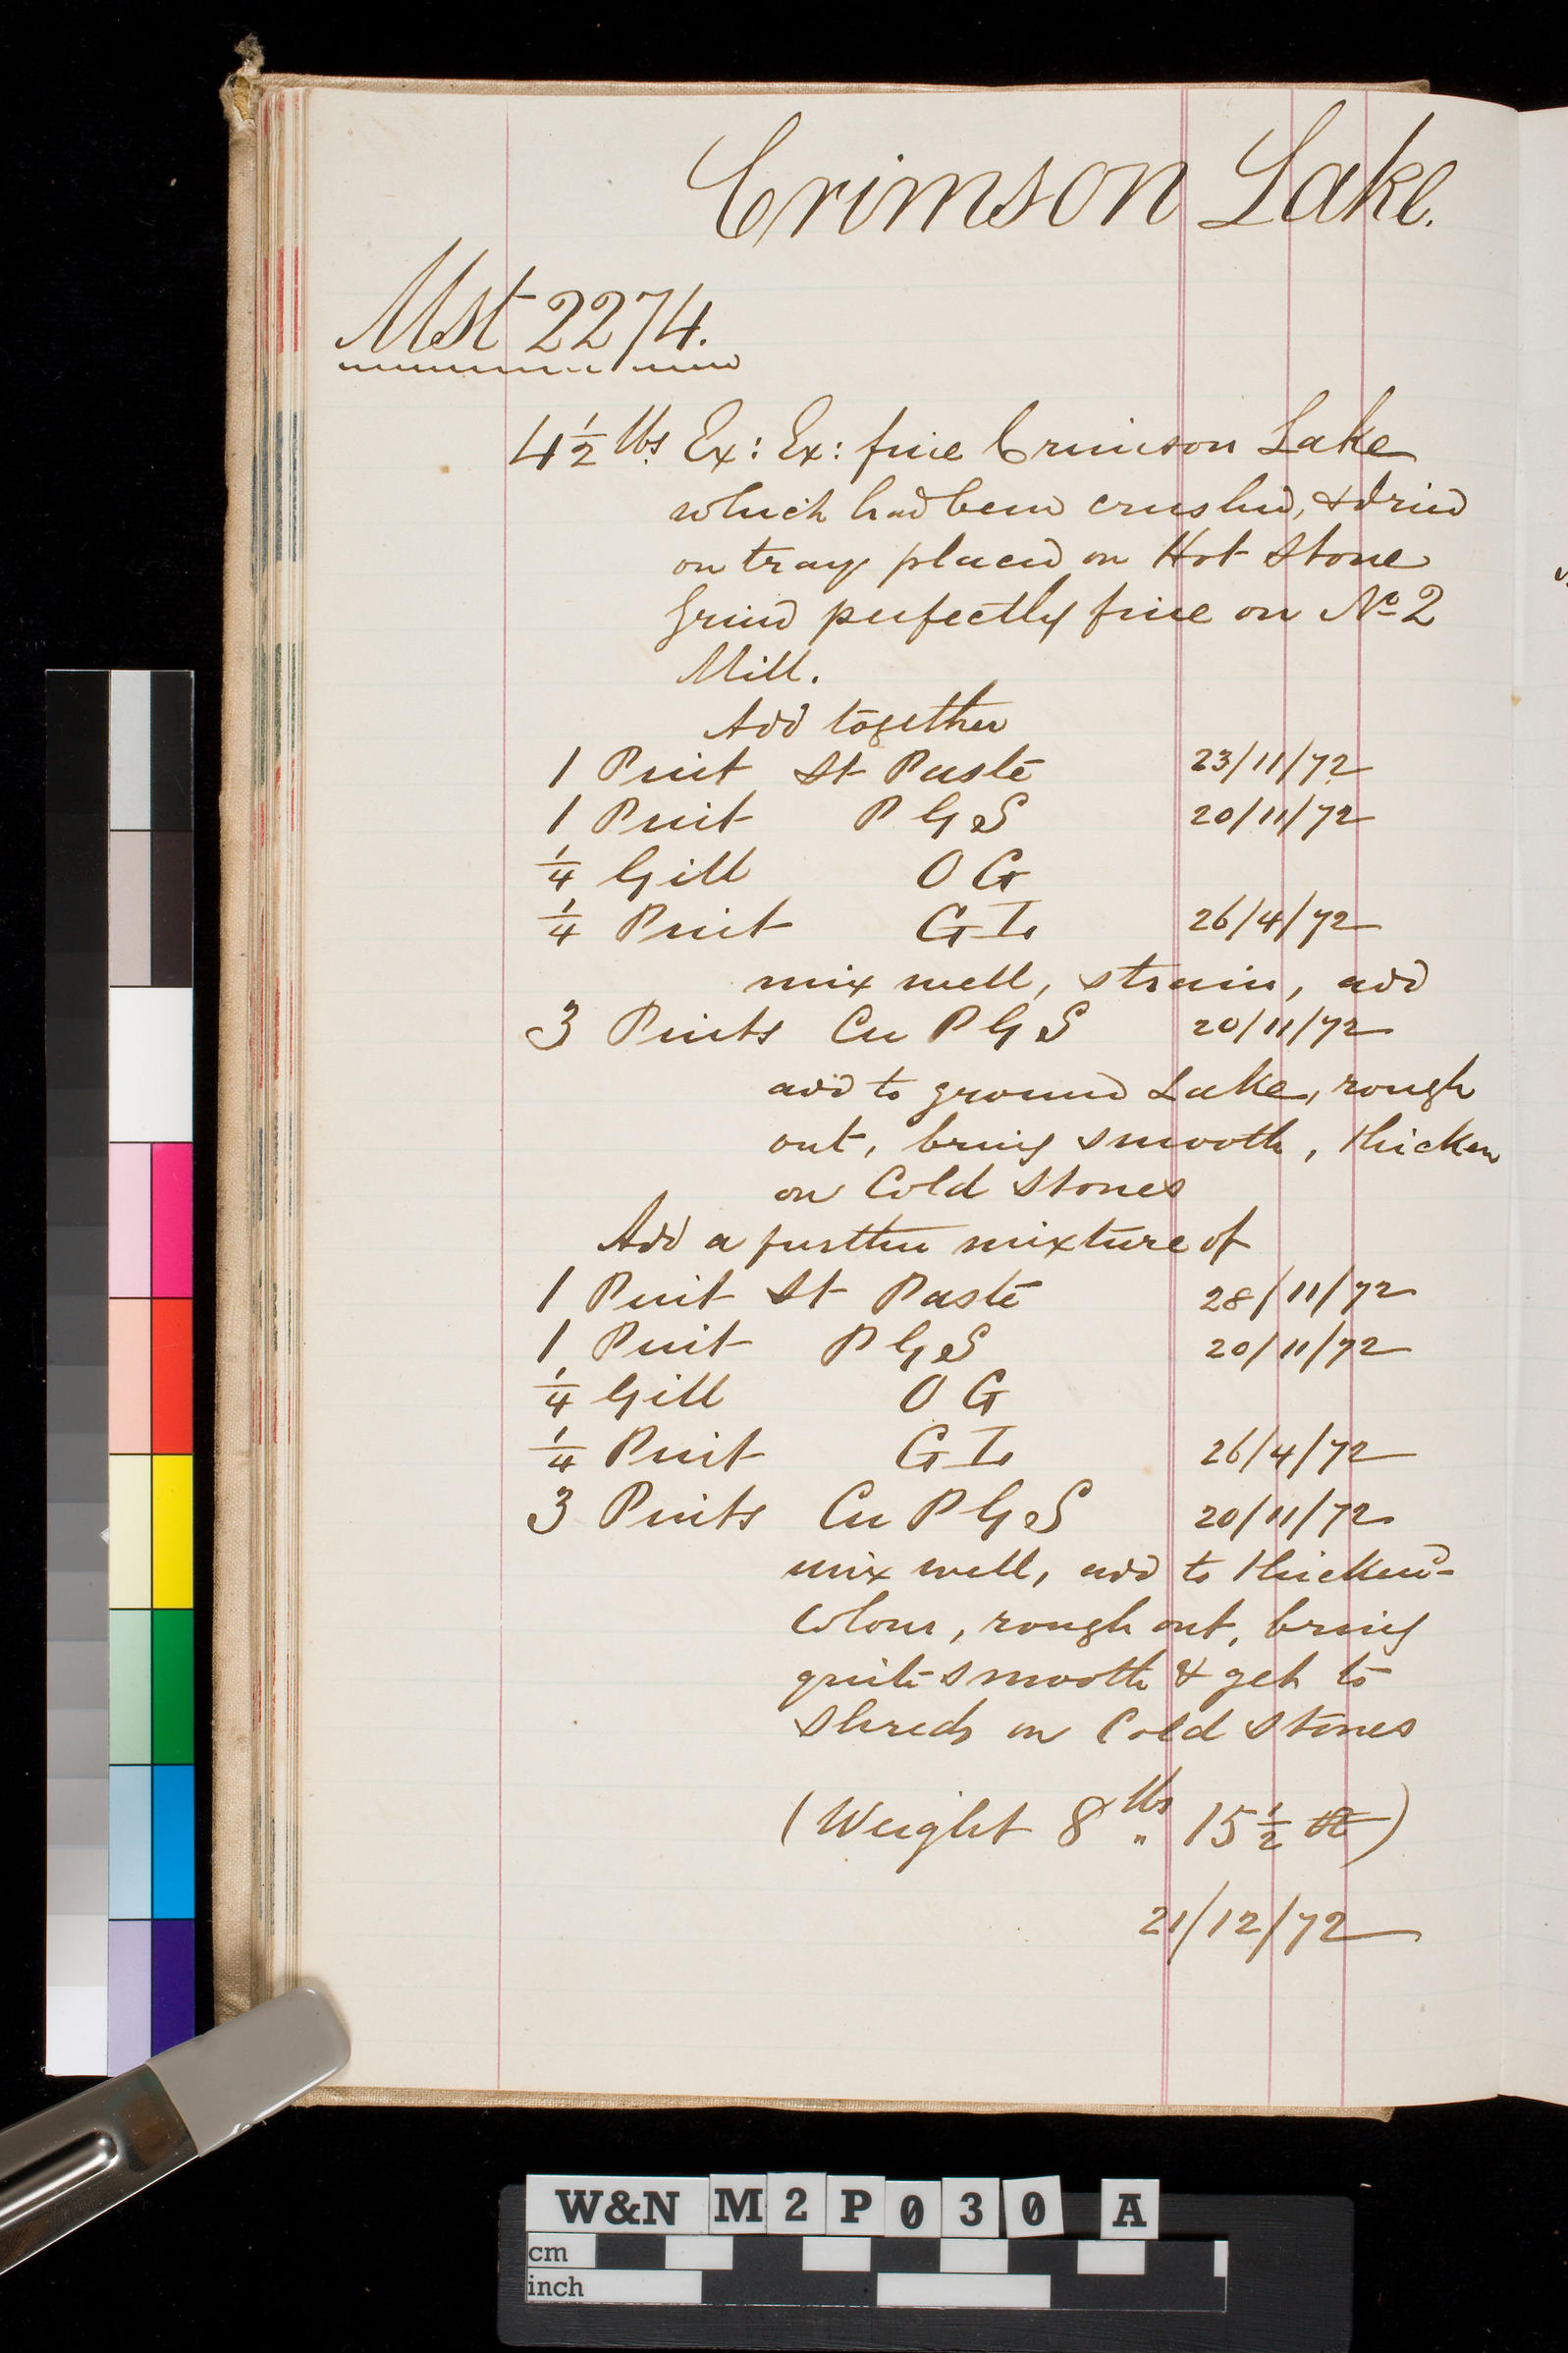 Crimson Lake.
Mst 2274.
4 1/2 lbs Ex: Ex: fine Crimson Lake
which had been crushed, & dried
on tray placed on Hot Stone
Grind perfectly fine on No 2
Mill.
Add together
1 Pint St Paste 23/11/72
1 Pint P G S 20/11/72
1/4 Gill O G
1/4 Pint G I 26/4/72
mix well, strain, add
3 Pints Cu P G S 20/11/72
add to ground Lake, rough
out, bring smooth, thicken
on Cold Stones
Add a further mixture of
1 Pint St Paste 28/11/72
1 Pint P G S 20/11/72
1/4 Gill O G
1/4 Pint G I 26/4/72
3 Pints Cu P G S 20/11/72
mix well, add to thickend
Colour, rough out, bring
quite smooth & get to
Shreds on Cold Stones
(Weight 8 lbs 15 1/2)
21/12/72
W&N M2P030 A
cm
inch